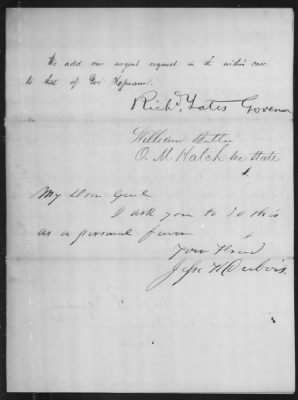 We add our urgent request in the within case
to that of Gov
Richd. Yates Governor
William Butler
O. M. Hatch Sec State
My Dear Genl
I ask you to do this
as a personal favor
Your friend
Jesse K Dubois